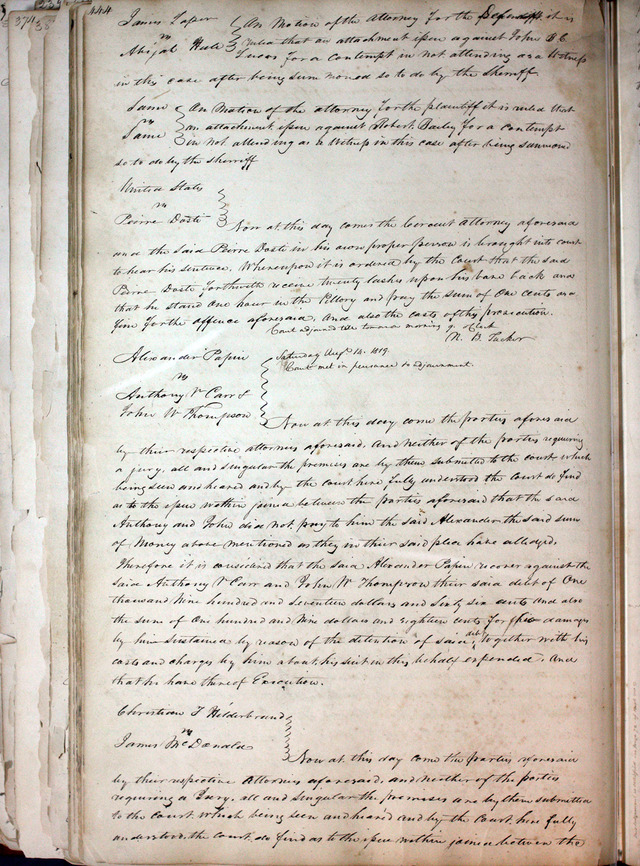 444
James Soper
vs
Abijah Hull
On Motion of the Attorney for the Defendant it is
ruled that an attachment issue against John B C
Lucas for a contempt in not attending as a Witness
in this case after being summoned so to do by the Sherriff
Same
vs
Same
On Motion of the attorney for the plaintiff it is ruled that
an attachment issue against Robert Bailey for a contempt
in not attending as a Witness in this case after being summoned
so to do by the sherriff
United States
vs
Peirre Dosti
Now at this day comes the Circuit Attorney aforesaid
and the said Peirre Dosti in his own proper person is brought into court
to hear his sentence. Whereupon it is ordered by the Court that the said
Peirre Dosti forthwith receive twenty lashes upon his bare back and
that he stand one hour in the Pillory and pay the sum of One cents as a
fine for the offence aforesaid. and also the costs of this prosecution.
Court adjourned till tomorrow morning 9 oClock
N. B. Tucker
Saturday Augt 14. 1819.
Court met in persuance to adjournment.
Alexander Papin
vs
Anthony V Carr &
John W Thompson
Now at this day come the parties aforesaid
by their respective attornies aforesaid. And neither of the parties requiring
a jury, all and singular the premises are by them submitted to the court which
being seen and heard and by the court here fully understood the Court do find
as to the issue within joined between the parties aforesaid that the said
Anthony and John did not pay to him the said Alexander the said sum
of Money above mentioned as they in their said plea have alledged.
Therefore it is considered that the said Alexander Papin recover against the
said Anthony V Carr and John W Thompson their said debt of One
thousand Nine hundred and seventeen dollars and sixty six cents and also
the sum of One hundred and Nine dollars and eighteen cents for his damages
by him sustained by reason of the detention of said debt, together with his
costs and charges by him about his suit in this behalf expended. And
that he have thereof Execution.
Christian T Hilderbrand
vs
James McDonald
Now at this day come the parties aforesaid
by their respective attornies aforesaid, and neither of the parties
requiring a Jury. all and singular the premises are by them submitted
to the Court which being seen and heard and by the Court here fully
understood. the court do find as to the issue within joined between the